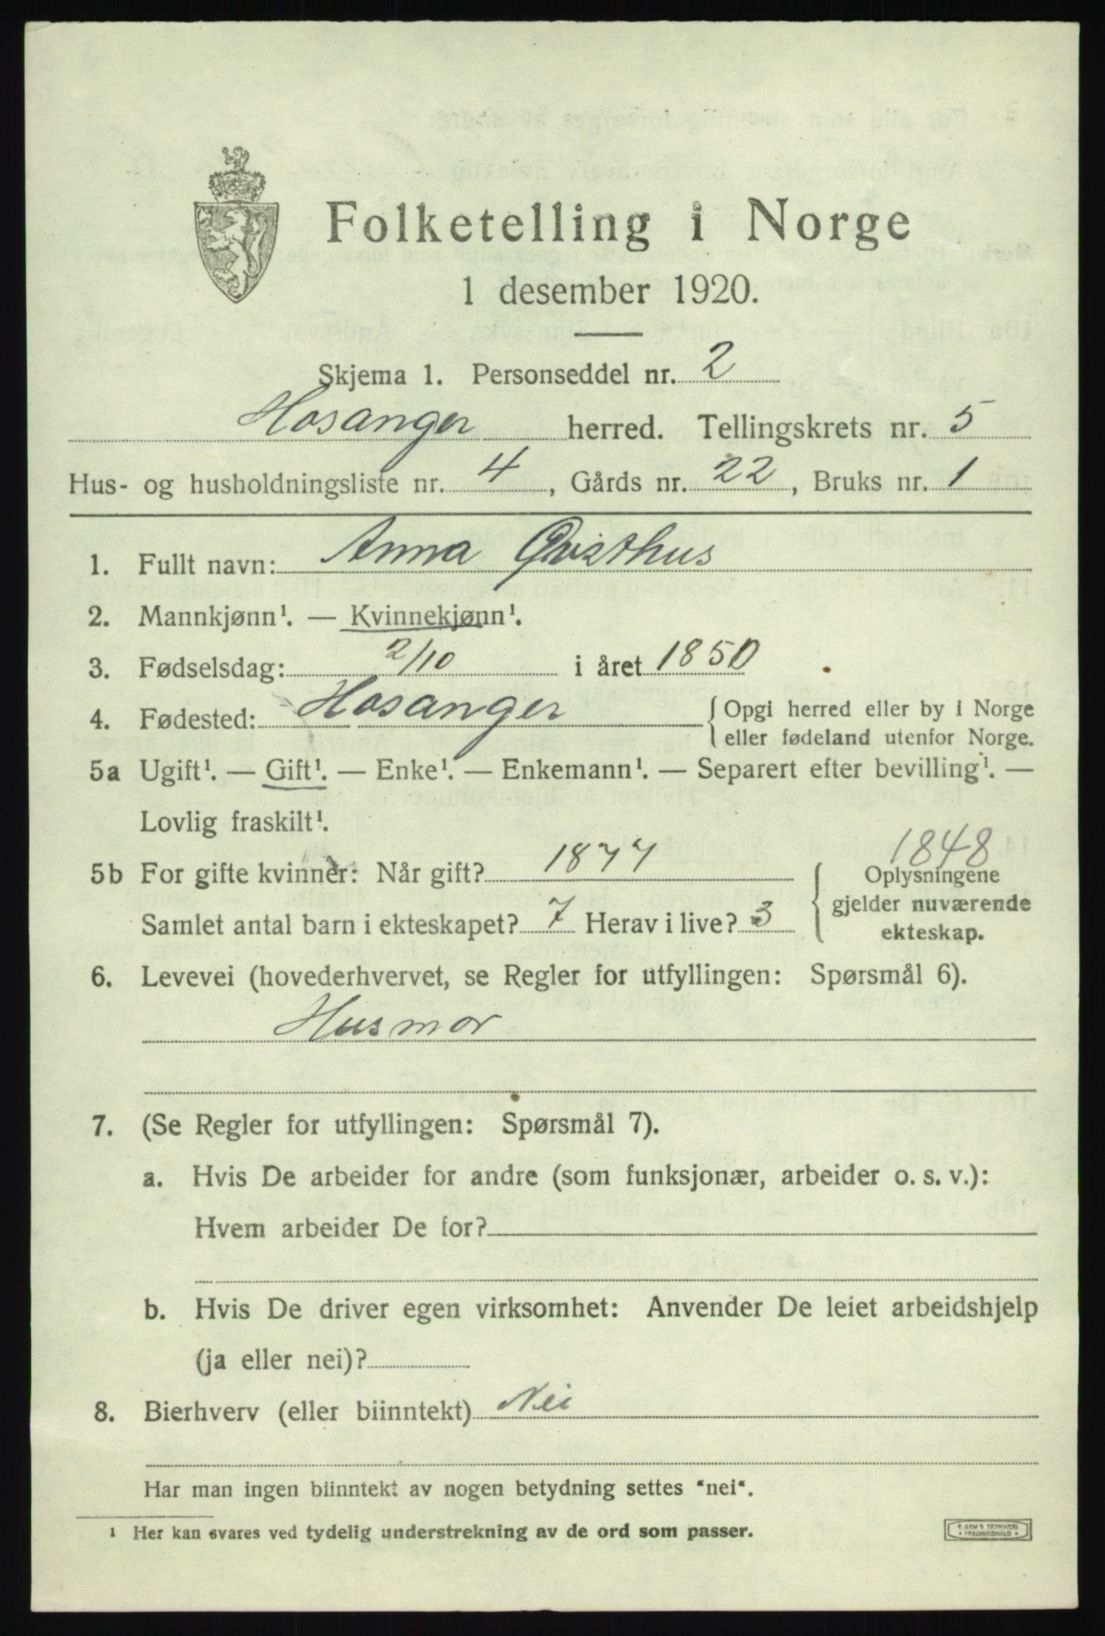 Folketelling i Norge
1 desember 1920.
Skjema 1. Personseddel nr. 2
Hosanger herred. Tellingskrets nr. 5
Hus- og husholdningsliste nr. 4, Gårds nr. 22, Bruks nr. 1
1. Fullt navn: Anna Qvisthus
2. Mannkjønn¹. — Kvinnekjønn¹.
3. Fødselsdag: 2/10 i året 1850
4. Fødested: Hosanger { Opgi herred eller by i Norge
eller fødeland utenfor Norge.
5a Ugift¹. — Gift¹. — Enke¹. — Enkemann¹. — Separert efter bevilling¹. —
Lovlig fraskilt¹.
1848
5b For gifte kvinner: Når gift? 1877 { Oplysningene
gjelder nuværende
Samlet antal barn i ekteskapet? 7 Herav i live? 3
ekteskap.
6. Levevei (hovederhvervet, se Regler for utfyllingen: Spørsmål 6).
Husmor
7. (Se Regler for utfyllingen: Spørsmål 7).
a. Hvis De arbeider for andre (som funksjonær, arbeider o. s. v.):
Hvem arbeider De for?
b. Hvis De driver egen virksomhet: Anvender De leiet arbeidshjelp
(ja eller nei)?
8. Bierhverv (eller biinntekt) Nei
Har man ingen biinntekt av nogen betydning settes "nei".
¹ Her kan svares ved tydelig understrekning av de ord som passer.